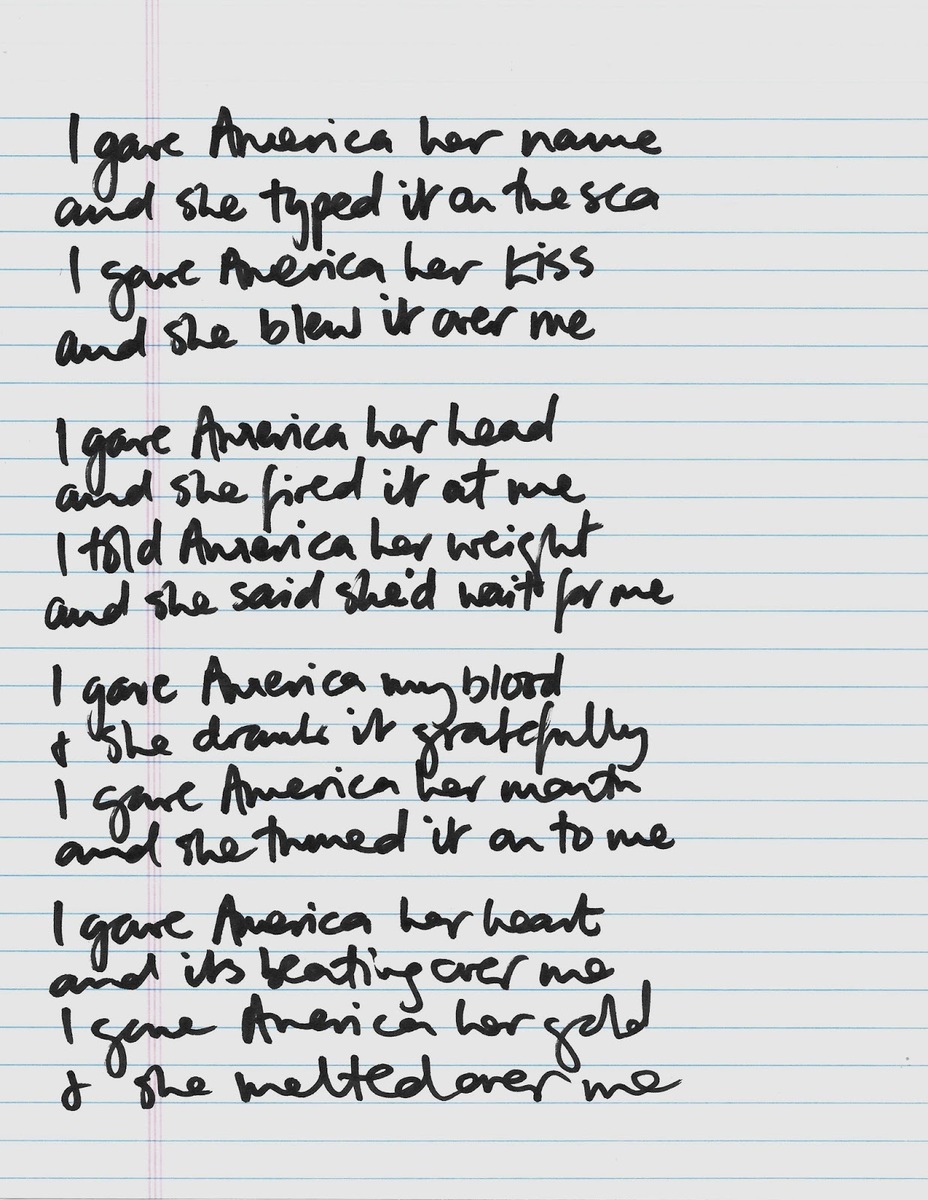 I gave America her name
and she typed it on the sea
I gave America her kiss
and she blew it over me
I gave America her head
and she fired it at me
I told America her weight
and she said she'd wait for me
I gave America my blood
& she drank it gratefully
I gave America her mouth
and she turned it on to me
I gave America her heart
and its beating over me
I gave America her gold
& she melted over me